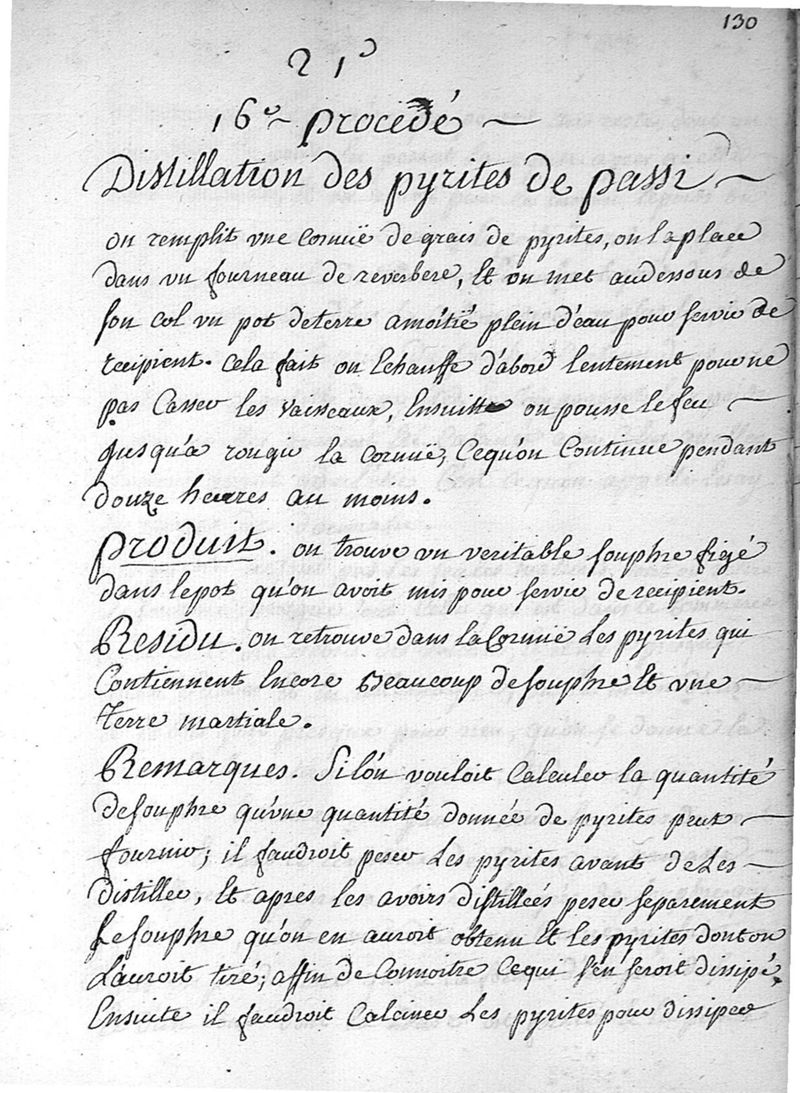 130
21º
16e procedé
Distillation des pyrites de passi
on remplit vne cornuë de grais de pyrites, on la place
dans vn fourneau de reverbere, et on met audessous de
son col vn pot de terre amoitié plein d'eau pour servir de
recipient. Cela fait on Echauffe d'abord lentement pour ne
pas Casser les vaisseaux, Ensuitte on pousse le feu
jusqu'a rougir la cornuë, Cequ'on Continue pendant
douze heures au moins.
produit. on trouve vn veritable souphre figé
dans lepot qu'on avoit mis pour servir de recipient.
Residu. on retrouve dans la Cornuë Les pyrites qui
Contiennent Encore Beaucoup desouphre Et vne
Terre martiale.
Remarques. Silón vouloit Calculer la quantité
desouphre qu'vne quantité donnée de pyrites peut
fournir; il faudroit peser Les pyrites avant de Les
distiller, Et apres les avoirs distilleés peser separement
Le souphre qu'on en auroit obtenu Et les pyrites donton
L'auroit tiré; affin de Connoitre Cequi s'en seroit dissipé.
Ensuite il faudroit Calciner Les pyrites pour dissiper